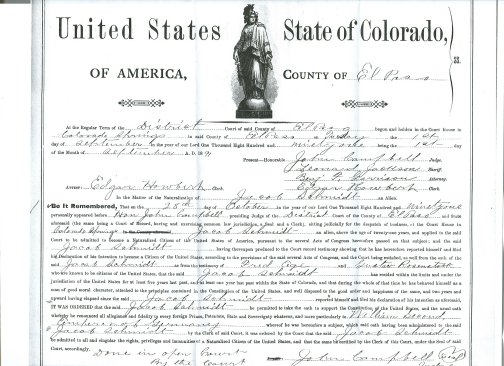 United States State of Colorado,
OF AMERICA, COUNTY OF El Paso ss.
At the Regular Term of the District Court of said County of El Paso begun and holden in the Court House in
Colorado Springs in said County of El Paso on Tuesday the 1st
day of September in the year of our Lord One Thousand Eight Hundred and ninety one being the 1st day
of the Month of September A. D. 1891
Present-Honorable John Campbell Judge.
Jackson
Attest: Edgar Howbert Clerk. Edgar Howbert Clerk.
In the Matter of the Naturalization of Jacob Schmidt an Alien.
Be it Remembered, That on the day of October in the year of our Lord One Thousand Eight Hundred and Ninety one
personally appeared before Hon John Campbell presiding Judge of the District Court of the County of El Paso and State
aforesaid (the same being a Court of Record, having and exercising common law jurisdiction, a Seal and a Clerk), sitting judicially for the despatch of business, at the Court House in
Colorado Springs in the County aforesaid Jacob Schmidt an Alien, above the age of twenty-one years, and applied to the said
Court to be admitted to become a Naturalized Citizen of the United States of America, pursuant to the several Acts of Congress heretofore passed on that subject; and the said
Jacob Schmidt having thereupon produced to the Court record testimony showing that he has heretofore reported himself and filed
his Declaration of his Intention to become a Citizen of the United States, according to the provisions of the said several Acts of Congress, and the Court being satisfied, as well from the oath of the said
Jacob Schmidt as from the testimony of Fred and Gustav
who are known to be citizens of the United States, that the said Jacob Schmidt has resided within the limits and under the
jurisdiction of the United States for at least five years last past, and at least one year last past within the State of Colorado, and that during the whole of that time he has behaved himself as a
man of good moral character, attached to the principles contained in the Constitution of the United States, and well disposed to the good order and happiness of the same, and two years and
upward having elapsed since the said Jacob Schmidt reported himself and filed his declaration of his intention as aforesaid,
IT WAS ORDERED that the said Jacob Schmidt be permitted to take the oath to support the Constitution of the United States, and the usual oath
whereby he renounced all allegiance and fidelity to every foreign Prince, Potentate, State and Sovereignty whatever, and more particularly to William Second,
Emperor of Germany whereof he was heretofore a subject, which said oath having been administered to the said
Jacob Schmidt by the Clerk of said Court, it was ordered by the Court that the said Jacob Schmidt
be admitted to all and singular the rights, privileges and immunities of a Naturalized Citizen of the United States, and that the same be certified by the Clerk of this Court, under the Seal of said
Court, accordingly. Done in open Court John Campbell (Seal)
By the Court